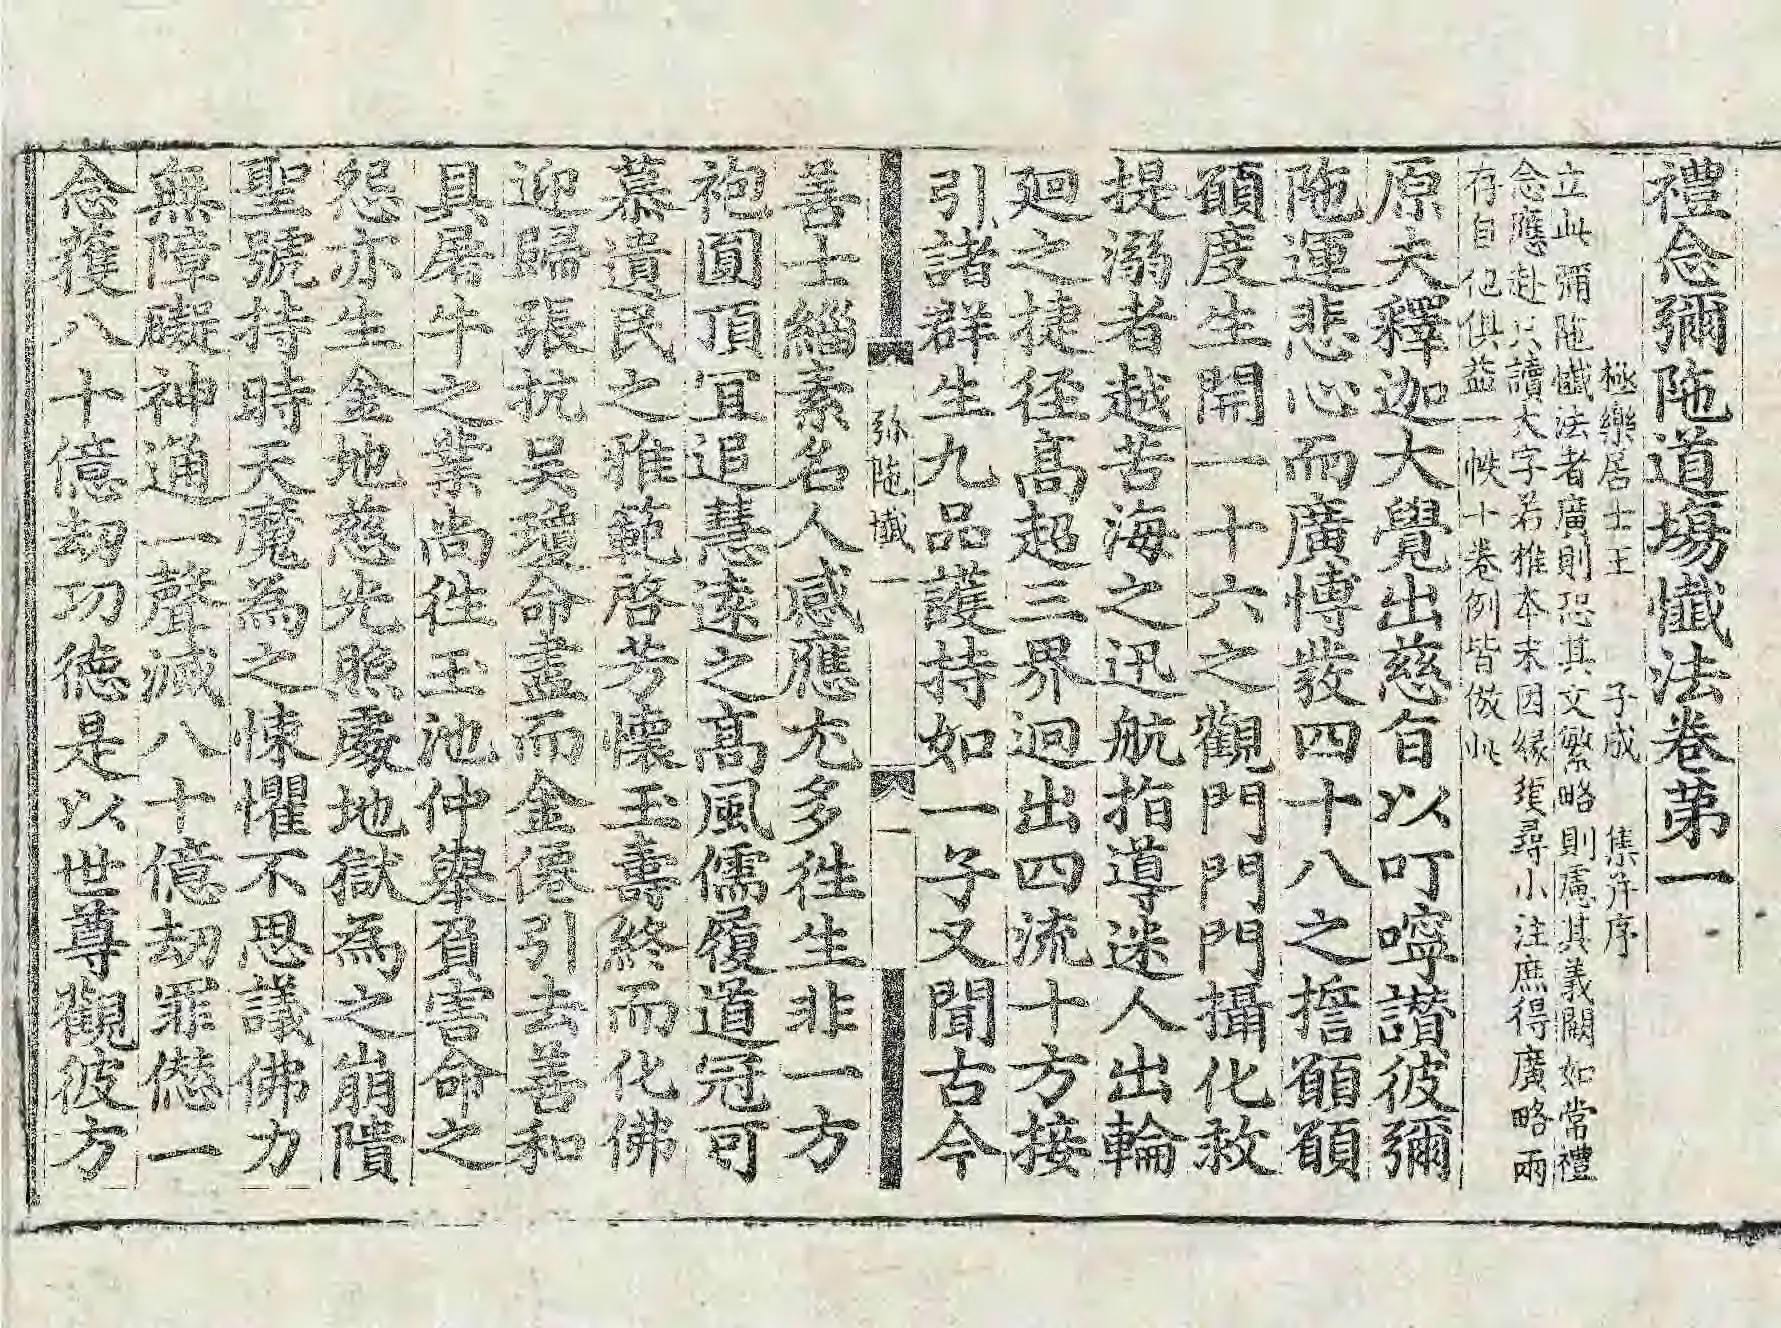 禮念彌陁道場懺法卷第一
極樂居士王 子成 集并序
立此彌陁懺法者廣則恐其文繁略則慮其義闕如常禮
念應赴只讀大字若推本末因緣須尋小注庶得廣略兩
存自他俱益一帙十卷例皆倣此
原夫釋迦大覺出慈旨以叮嚀讃彼彌
陁運悲心而廣博發四十八之擔願願
願度生開一十六之觀門門門攝化救
提溺者越苦海之迅航指導迷人出輪
廻之捷徑高超三界迥出四流十方接
引諸群生九品護持如一子又聞古今
弥陁懺一
一
善士緇素名人感應尤多徃生非一方
袍圓頂宜追慧遠之高風儒履道冠可
慕遺民之雅範啓芳懷玉壽終而化佛
迎歸張抗吴瓊命盡而金僊引去善和
具屠牛之業尚徃玉池仲舉負害命之
怨亦生金地慈光照處地獄為之崩隤
聖號持時天魔為之悚懼不思議佛力
無障礙神通一聲滅八十億劫罪愆一
念獲八十億劫功德是以世尊觀彼方